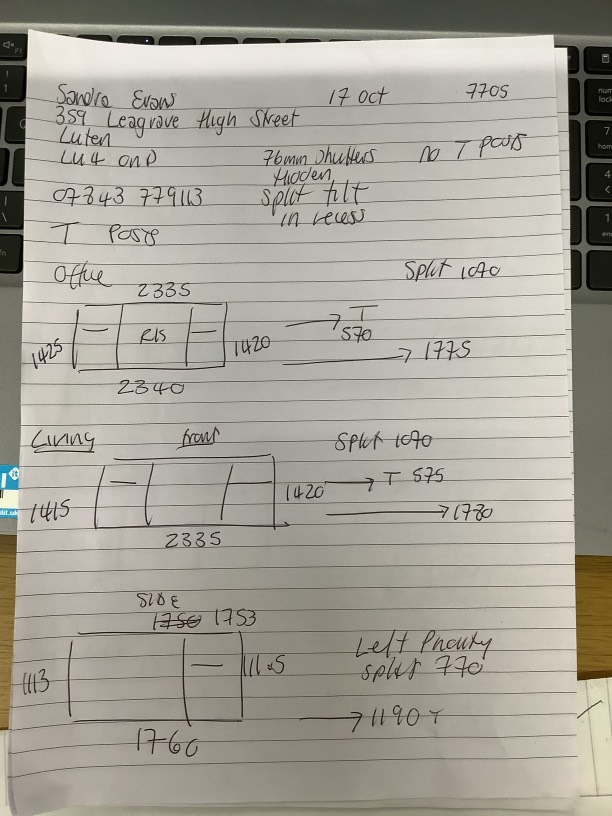 Sandra Evans 17 Oct 7705
359 Leagrave High Street
Luten
LU4 0ND 76mm Shutters NO T Posts
Hidden
07843 779113 Split tilt
in recess
T Posts
Office Split 1070
2335
1425 RIS 1420 T 570
1775
2340
Living front Split 1070
1415 1420 T 575
1780
2335
SIDE
1750 1753
1113 1115 Left Priority
Split 770
1190 T
1760